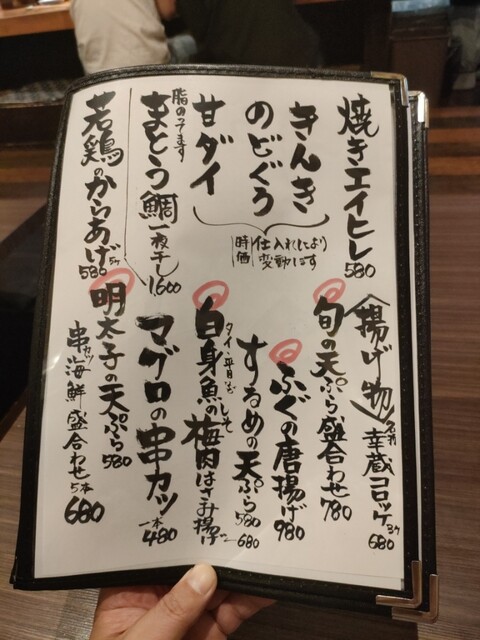 焼きエイヒレ 580
きんき
のどぐろ
甘ダイ
時価 仕入れにより変動します
脂のってます
まとう鯛一夜干し 1,600
若鶏のからあげ 5ケ 580
〈揚げ物〉
名物 幸蔵コロッケ 3ケ 680
旬の天ぷら盛合わせ 780
ふぐの唐揚げ 980
するめの天ぷら 580
タイ・平目など
白身魚のしそ梅肉はさみ揚げ 680
マグロの串カツ 一本 480
明太子の天ぷら 580
串カツ海鮮盛合わせ 5本 680